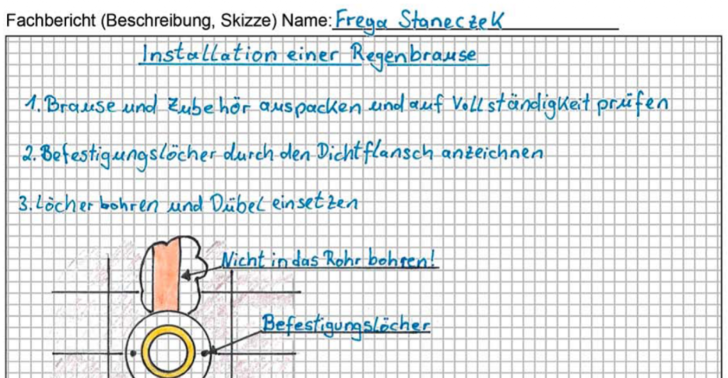 Fachbericht (Beschreibung, Skizze) Name: Frega Staneczek
Installation einer Regenbrause
1. Brause und Zubehör auspacken und auf Vollständigkeit prüfen
2. Befestigungslöcher durch den Dichtflansch anzeichnen
3. Löcher bohren und Dübel einsetzen
Nicht in das Rohr bohren!
Befestigungslöcher